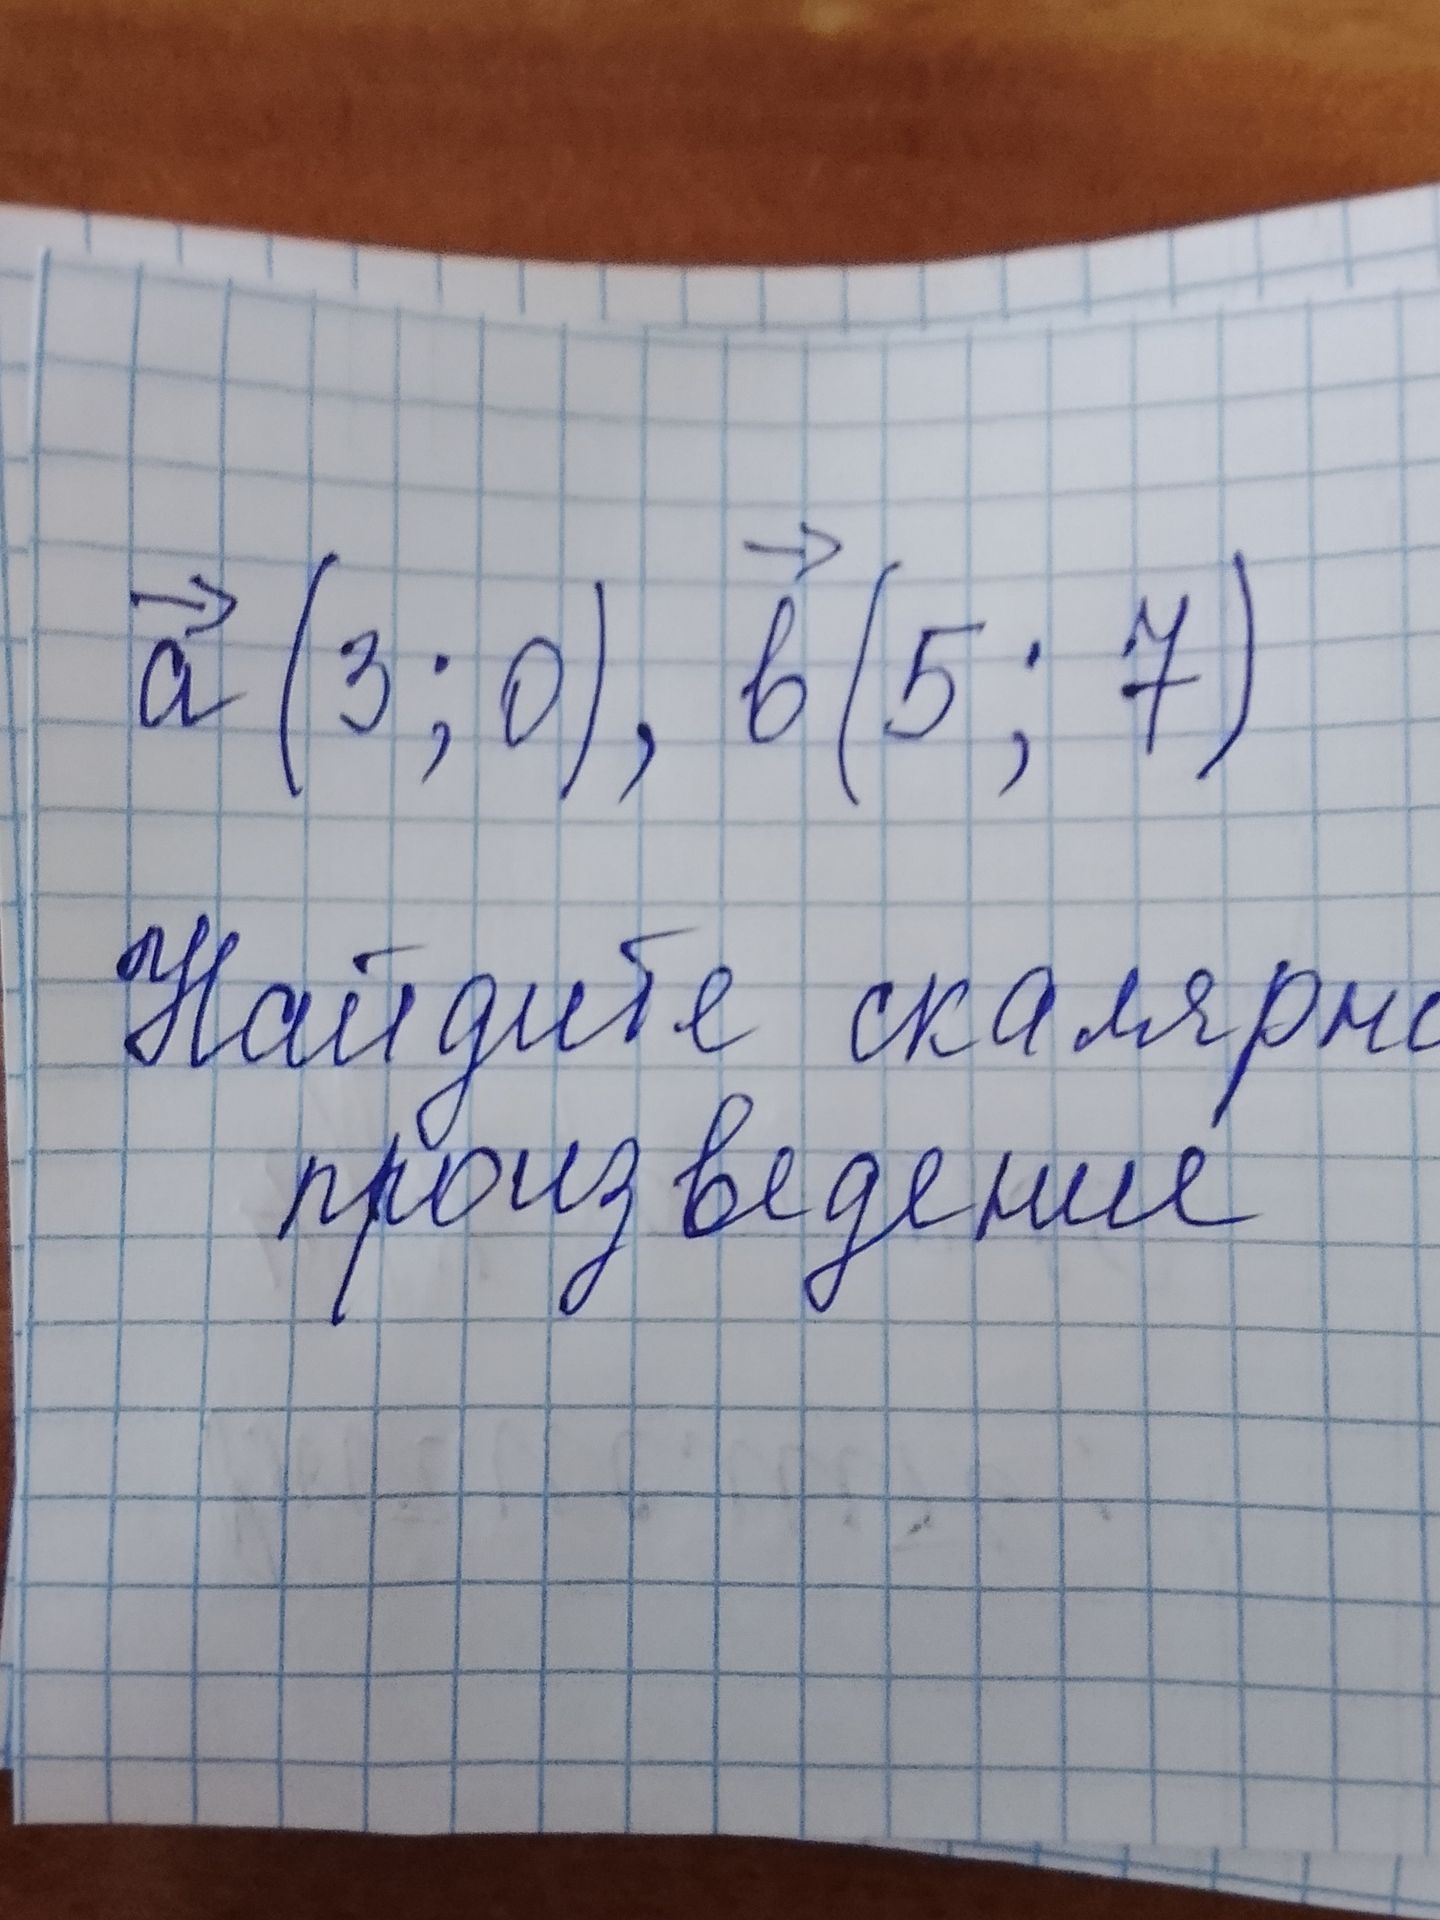 a⃗ (3; 0), b⃗ (5; 7)
Найдите скалярно
произведение